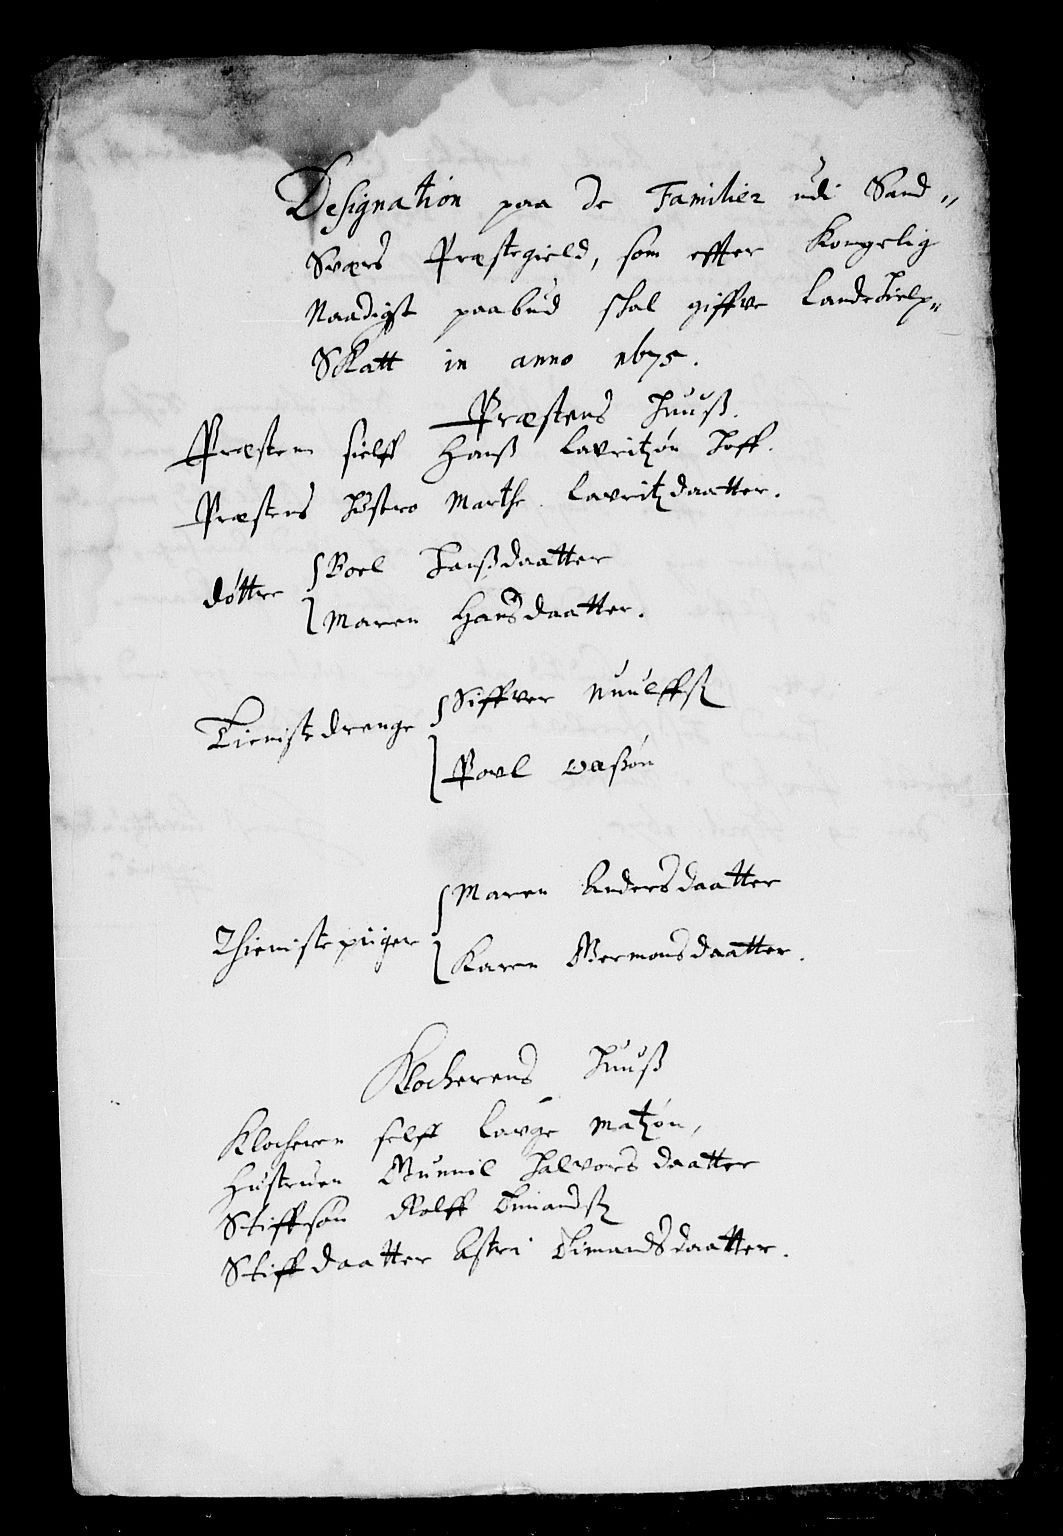 Designation paa de Familier udi Sand„
Sværs Præstegield, som effter Kongelig
Naadigst paabud skal giffve landehielp„
Skatt in anno 1675.
Præstens huuß.
Præsten sielff Hanß Lavritzøn Hoff.
Præstens hustro Marthe Lavritzdaatter.
døttre { Boel Hanßdaatter
Maren Hansdaatter.
Tienistedrenge { Siffver
Povl
Thienistepiiger { Maren Andersdaatter
Karen Germonsdaatter.
Klocherens huuß
Klocheren selff Lauge Matzøn,
Hustruen Gunnil Halvorsdaatter
Stiffsøn Rolff
Stiffdaatter Astri Timandsdaatter.